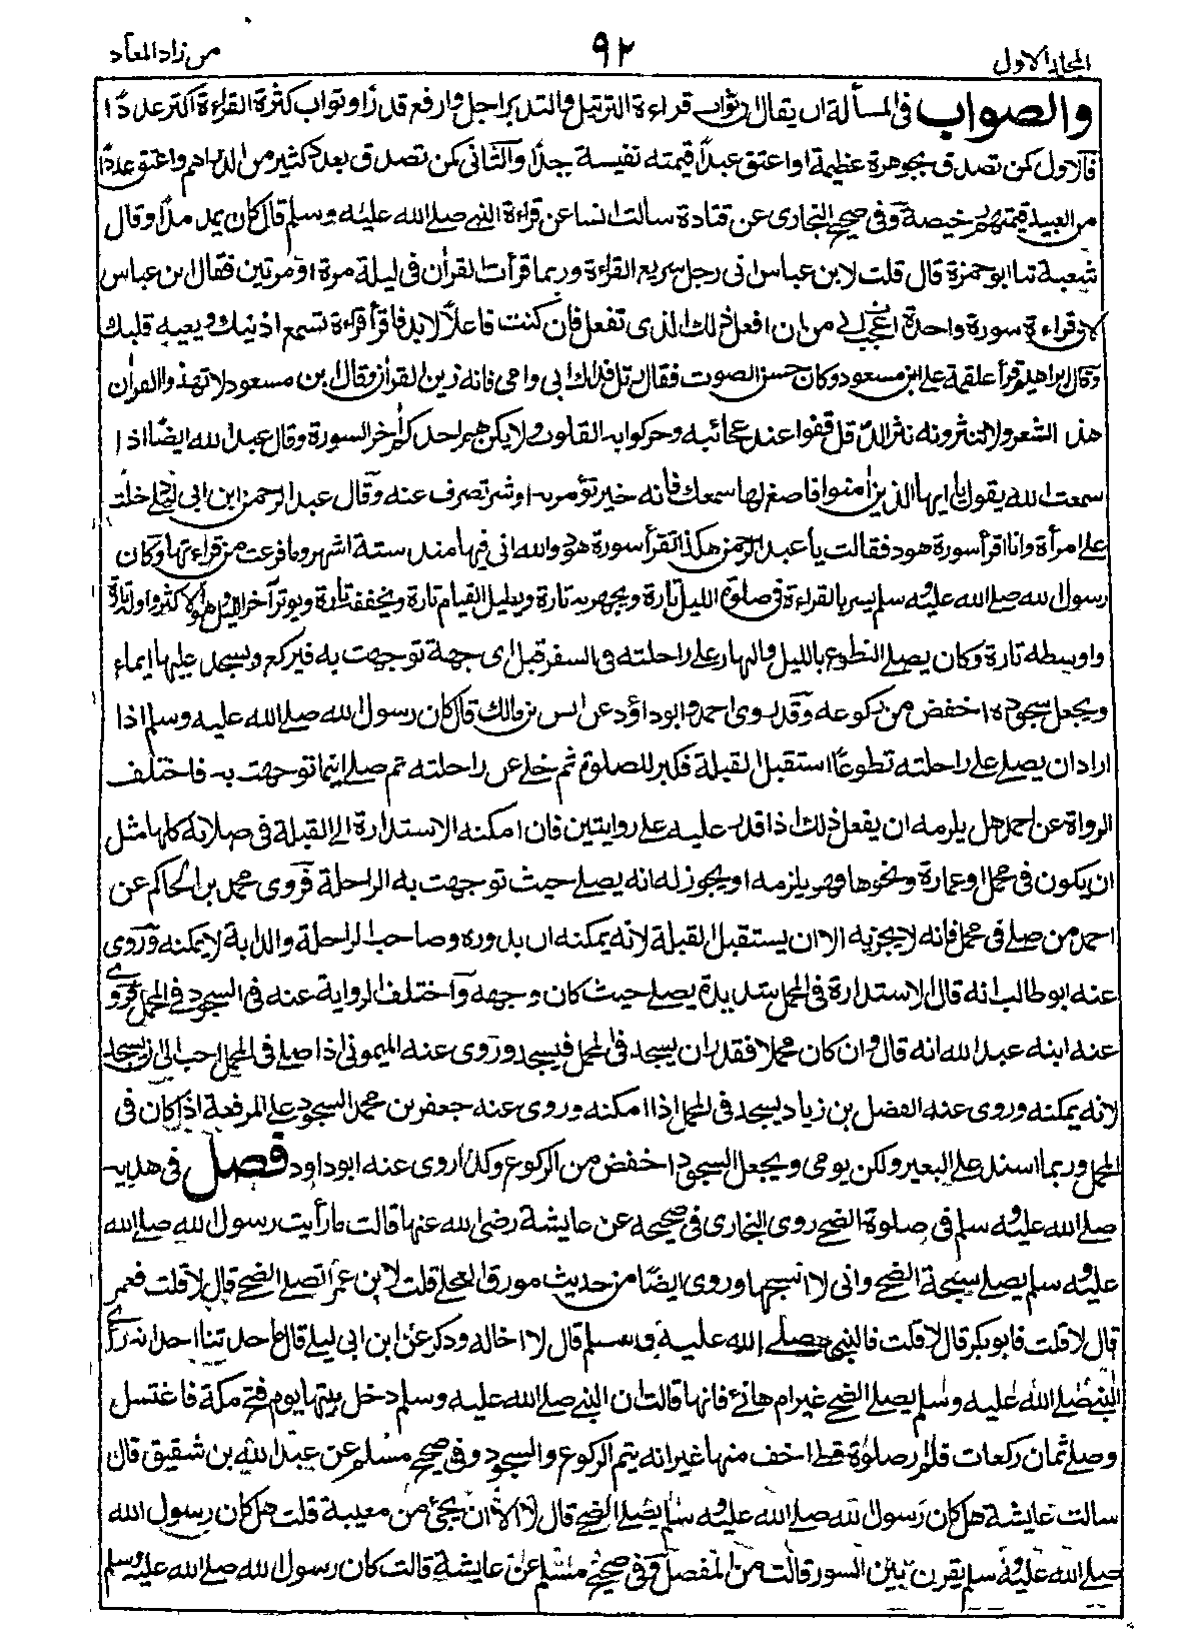 المجلد الاول
٩٢
من زاد المعاد
والصواب فى المسألة ان يقال ان ثواب قراءة الترتيل والتدبر اجل وارفع قدرًا وثواب كثرة القراءة اكثر عددًا
فالاول كمن تصدق بجوهرة عظيمة او اعتق عبدًا قيمته نفيسة جدًا والثانى كمن تصدق بعدد كثير من الدراهم واعتق عددًا
من العبيد قيمتهم رخيصة وفى صحيح البخارى عن قتادة سالت انسا عن قراءة النبى صلى الله عليه وسلم قال كان يمد مدًا وقال
شعبة ثنا ابو حمزة قال قلت لابن عباس انى رجل سريع القراءة وربما قرأت القران فى ليلة مرة او مرتين فقال ابن عباس
لان قراءة سورة واحدة اعجب الى من ان افعل ذلك الذى تفعل فان كنت فاعلًا لابد فاقرأ قراءة تسمع اذنيك ويعيه قلبك
وقال ابراهيم قرأ علقمة على ابن مسعود وكان حسن الصوت فقال رتل فداك ابى وامى فانه زين القران وقال ابن مسعود لا تهذوا القران
هذ الشعر ولا تنثرونه نثر الدقل قفوا عند عجائبه وحركوا به القلوب ولا يكن هم احدكم اٰخر السورة وقال عبد الله ايضًا اذا
سمعت الله يقول يا ايها الذين اٰمنوا فاصغ لها سمعك فانه خير تؤمر به او شر تصرف عنه وقال عبد الرحمن ابن ابى ليلى دخلت
على امرأة وانا اقرأ سورة هود فقالت يا عبد الرحمن هكذا تقرأ سورة هود والله انى فيها منذ ستة اشهر وما فرغت من قراءتها وكان
رسول الله صلى الله عليه وسلم يسر بالقراءة فى صلوة الليل تارة ويجهر به تارة ويطيل القيام تارة ويخففه تارة ويوتر آخر الليل وهو الاكثر واوله تارة
واوسطه تارة وكان يصلى التطوع بالليل والنهار على راحلته فى السفر قبل اى جهة توجهت به فيركع ويسجد عليها ايماء
ويجعل سجوده اخفض من ركوعه وقد روى احمد وابو داؤد عن انس بن مالك قال كان رسول الله صلى الله عليه وسلم اذا
اراد ان يصلى على راحلته تطوعًا استقبل القبلة فكبر للصلوة ثم خلى عن راحلته ثم صلى اينما توجهت به فاختلف
الرواة عن احمد هل يلزمه ان يفعل ذلك اذا قدر عليه على روايتين فان امكنه الاستدارة الى القبلة فى صلاته كلها مثل
ان يكون فى محمل او عمارة ونحوها فهو يلزمه او يجوز له انه يصلى حيث توجهت به الراحلة فروى محمد بن الحاكم عن
احمد من صلى فى محمل فانه لا يجزيه الا ان يستقبل القبلة لانه يمكنه ان يدوره وصاحب الراحلة والدابة لا يمكنه وروى
عنه ابو طالب انه قال الاستدارة فى المحمل شديدة يصلى حيث كان وجهه واختلف الرواية عنه فى السجود فى المحمل فروى
عنه ابنه عبد الله انه قال وان كان محملا فقدر ان يسجد فى المحمل فيسجد وروى عنه الميمونى اذا صلى فى المحمل احب الى ان يسجد
لانه يمكنه وروى عنه الفضل بن زياد يسجد فى المحمل اذا امكنه وروى عنه جعفر بن محمد السجود على المرفعة اذا كان فى
المحمل وربما اسند على البعير ولكن يومى ويجعل السجود اخفض من الركوع وكذا روى عنه ابو داود فصل فى هديه
صلى الله عليه وسلم فى صلوة الضحى روى البخارى فى صحيحه عن عايشة رضى الله عنها قالت ما رأيت رسول الله صلى الله
عليه وسلم يصلى سبحة الضحى وانى لا اسبحها وروى ايضًا من حديث مورق العجلى قلت لابن عمر اتصلى الضحى قال لا قلت فعمر
قال لا قلت فابو بكر قال لا قلت فالنبى صلى الله عليه وسلم قال لا اخاله وذكر عن ابن ابى ليلى قال ما حدثنا احد انه رأى
النبى صلى الله عليه وسلم يصلى الضحى غير ام هانئ فانها قالت ان النبى صلى الله عليه وسلم دخل بيتها يوم فتح مكة فاغتسل
وصلى ثمان ركعات فلم ار صلوة قط اخف منها غير انه يتم الركوع والسجود وفى صحيح مسلم عن عبد الله بن شقيق قال
سالت عايشة هل كان رسول الله صلى الله عليه وسلم يصلى الضحى قال لا الا ان يجئ من مغيبة قلت هل كان رسول الله
صلى الله عليه وسلم يقرن بين السور قالت من المفصل وفى صحيح مسلم عن عايشة قالت كان رسول الله صلى الله عليه وسلم